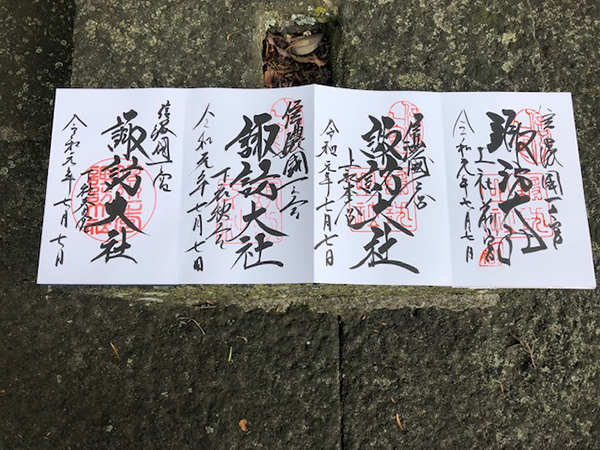 信濃國一宮
諏訪大社
上社前宮
令和元年七月七日
信濃國一宮
諏訪大社
上社本宮
令和元年七月七日
信濃國一宮
諏訪大社
下社秋宮
令和元年七月七日
信濃國一宮
諏訪大社
下社春宮
令和元年七月七日